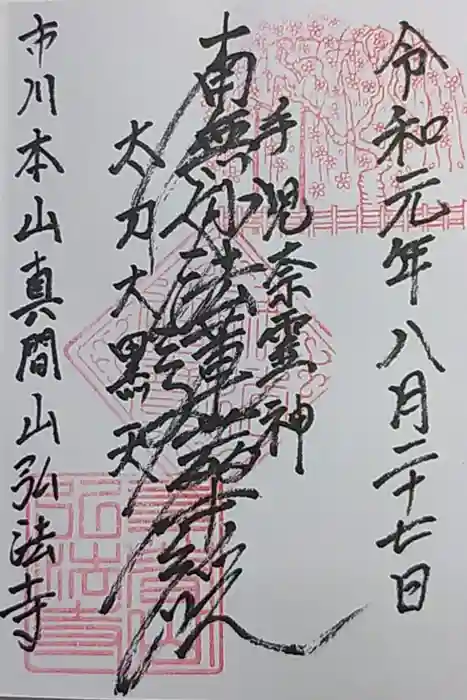 令和元年八月二十七日
手児奈霊神
南無妙法蓮華経
太刀大黒天
市川本山真間山弘法寺